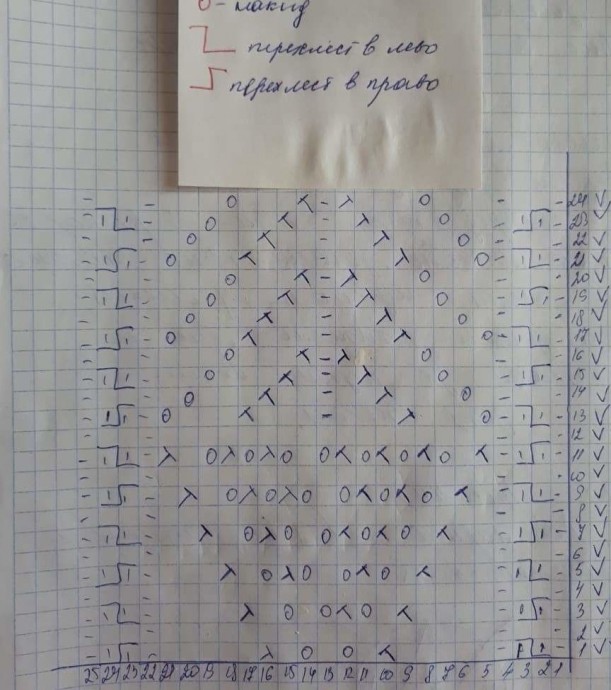 О - накид
перехлест в лево
перехлест в право
24 V
23 V
22 V
21 V
20 V
19 V
18 V
17 V
16 V
15 V
14 V
13 V
12 V
11 V
10 V
9 V
8 V
7 V
6 V
5 V
4 V
3 V
2 V
1 V
25 24 23 22 21 20 19 18 17 16 15 14 13 12 11 10 9 8 7 6 5 4 3 2 1